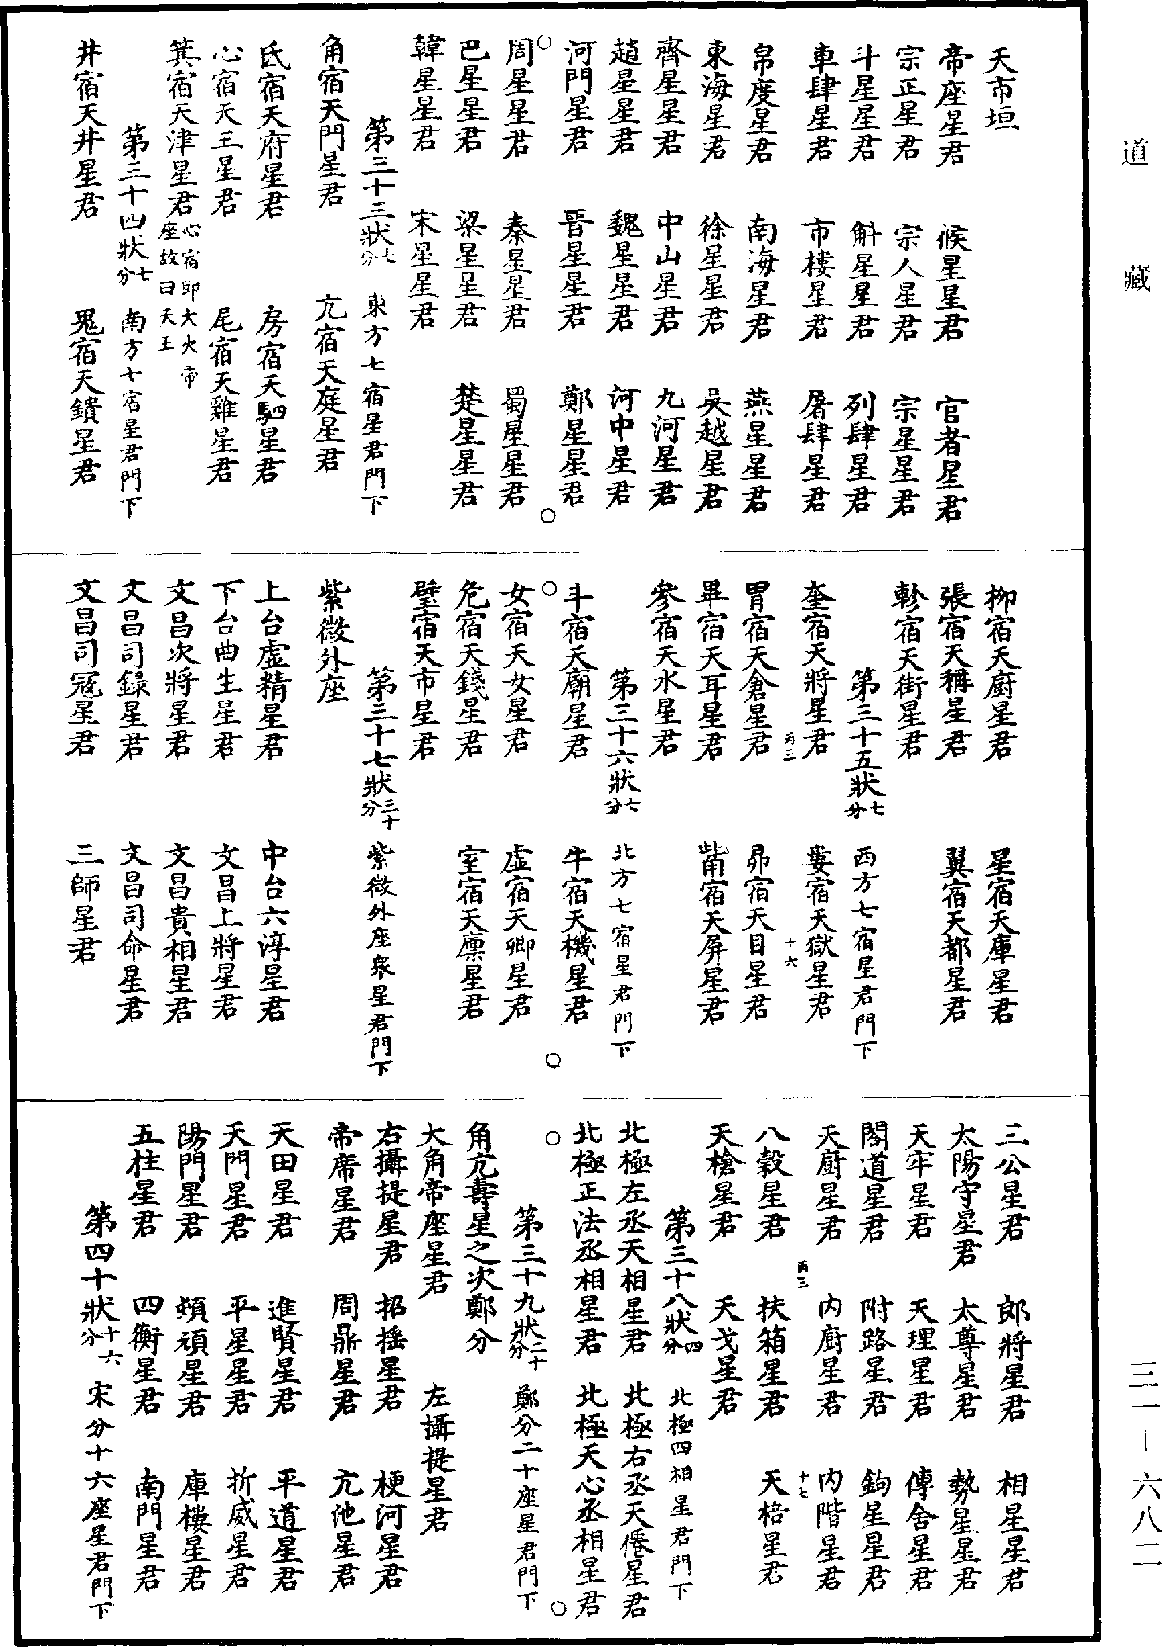 道藏
三一—六八二
天市垣
帝座星君 候星星君 官者星君
宗正星君 宗人星君 宗星星君
斗星星君 斛星星君 列肆星君
車肆星君 市樓星君 屠肆星君
帛度星君 南海星君 燕星星君
東海星君 徐星星君 吳越星君
齊星星君 中山星君 九河星君
趙星星君 魏星星君 河中星君
河門星君 晉星星君 鄭星星君
周星星君 秦星星君 蜀星星君
巴星星君 梁星星君 楚星星君
韓星星君 宋星星君
第三十三狀七分 東方七宿星君門下
角宿天門星君 亢宿天庭星君
氐宿天府星君 房宿天駟星君
心宿天王星君 尾宿天雞星君
箕宿天津星君 心宿即大火帝座故曰天王
第三十四狀七分 南方七宿星君門下
井宿天井星君 鬼宿天鑕星君
柳宿天廚星君 星宿天庫星君
張宿天稱星君 翼宿天都星君
軫宿天街星君
第三十五狀七分 西方七宿星君門下
奎宿天將星君 婁宿天獄星君
丙二 十六
胃宿天倉星君 昴宿天目星君
畢宿天耳星君 觜宿天屏星君
參宿天水星君
第三十六狀七分 北方七宿星君門下
斗宿天廟星君 牛宿天機星君
女宿天女星君 虛宿天卿星君
危宿天錢星君 室宿天廩星君
壁宿天市星君
第三十七狀三十分 紫微外座衆星君門下
紫微外座
上台虛精星君 中台六淳星君
下台曲生星君 文昌上將星君
文昌次將星君 文昌貴相星君
文昌司錄星君 文昌司命星君
文昌司寇星君 三師星君
三公星君 郎將星君 相星星君
太陽守星君 太尊星君 勢星星君
天牢星君 天理星君 傳舍星君
閣道星君 附路星君 鉤星星君
天廚星君 內廚星君 內階星君
丙三 十七
八穀星君 扶箱星君 天棓星君
天槍星君 天戈星君
第三十八狀四分 北極四相星君門下
北極左丞天相星君 北極右丞天僊星君
北極正法丞相星君 北極天心丞相星君
第三十九狀二十分 鄭分二十座星君門下
角亢壽星之次鄭分
大角帝座星君 左攝提星君
右攝提星君 招搖星君 梗河星君
帝席星君 周鼎星君 亢池星君
天田星君 進賢星君 平道星君
天門星君 平星星君 折威星君
陽門星君 頡頏星君 庫樓星君
五柱星君 四衡星君 南門星君
第四十狀十六分 宋分十六座星君門下